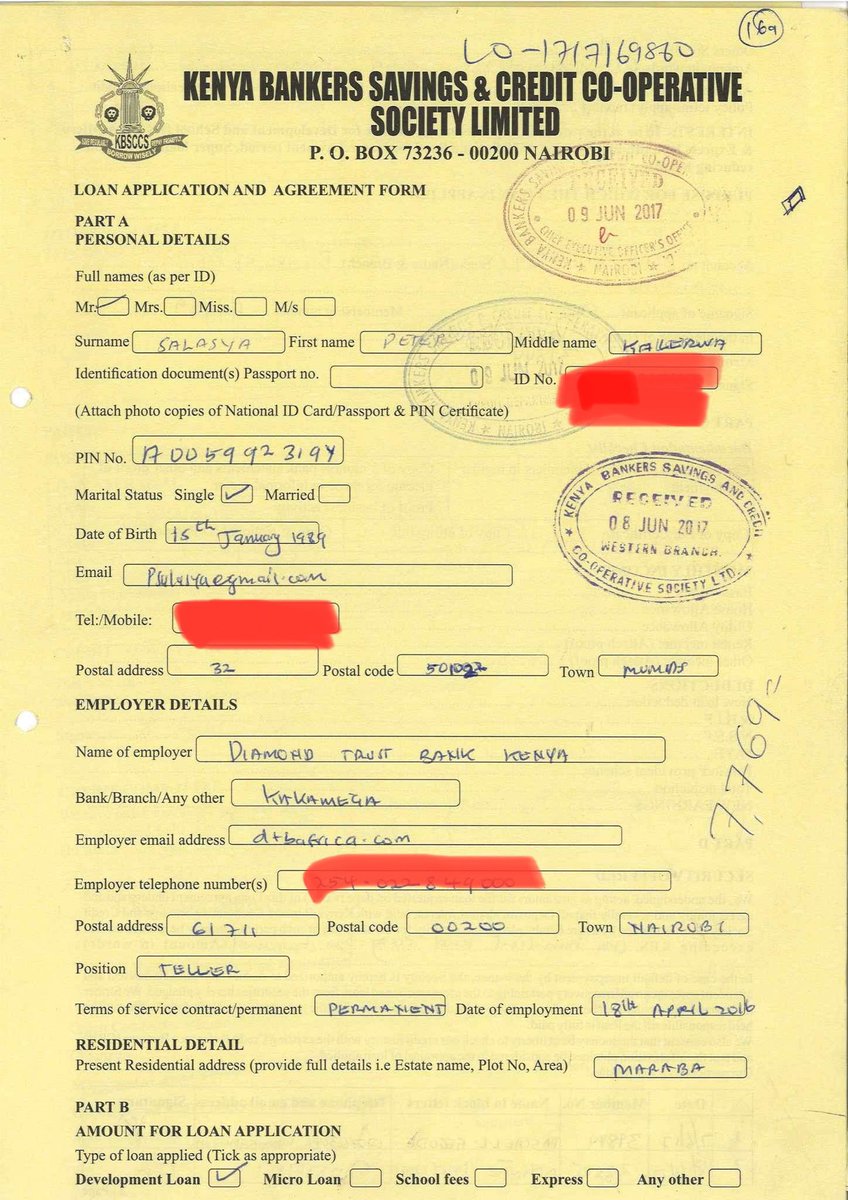 16a
LO-1717169860
KENYA BANKERS SAVINGS & CREDIT CO-OPERATIVE
SOCIETY LIMITED
KBSCCS
BORROW WISELY
P. O. BOX 73236 - 00200 NAIROBI
LOAN APPLICATION AND AGREEMENT FORM
RECEIVED
09 JUN 2017
CHIEF EXECUTIVE OFFICER'S OFFICE
NAIROBI
PART A
PERSONAL DETAILS
Full names (as per ID)
Mr. Mrs. Miss. M/s
Surname SALASYA First name PETER Middle name KALERWA
Identification document(s) Passport no. ID No.
(Attach photo copies of National ID Card/Passport & PIN Certificate)
NAIROBI
PIN No. A005992319Y
Marital Status Single Married
KENYA BANKERS SAVINGS AND CREDIT
RECEIVED
08 JUN 2017
WESTERN BRANCH
CO-OPERATIVE SOCIETY LTD.
Date of Birth 15th January 1989
Email
Tel:/Mobile:
Postal address 32 Postal code Town MUMIAS
EMPLOYER DETAILS
7,769
Name of employer DIAMOND TRUST BANK KENYA
Bank/Branch/Any other KAKAMEGA
Employer email address dtbafrica.com
Employer telephone number(s)
Postal address 61711 Postal code 00200 Town NAIROBI
Position TELLER
Terms of service contract/permanent PERMANENT Date of employment 18th APRIL 2016
RESIDENTIAL DETAIL
Present Residential address (provide full details i.e Estate name, Plot No, Area) MARABA
PART B
AMOUNT FOR LOAN APPLICATION
Type of loan applied (Tick as appropriate)
Development Loan Micro Loan School fees Express Any other